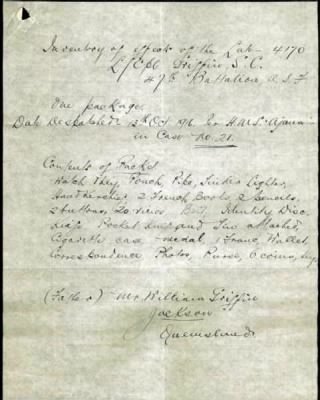 Inventory of effects of the Late 4170
L/Cpl Griffin, S.C.
47th Battalion A.I.F
One package.
Date Despatched 13th Oct 1916 per H.M.S.
in Case No. 21.
Contents of Packet
Watch, Key, Pouch, Pipe, Tinder Lighter,
Handkerchief 2 French Books 2 Pencils,
2 buttons, 20 views Belt Identity Disc
Pocket and attached,
Cigarette case medal 1 Franc, Wallet,
Correspondence Photos, Purse, 6 coins,
(Father) Mr. William Griffin
Jackson
Queensland